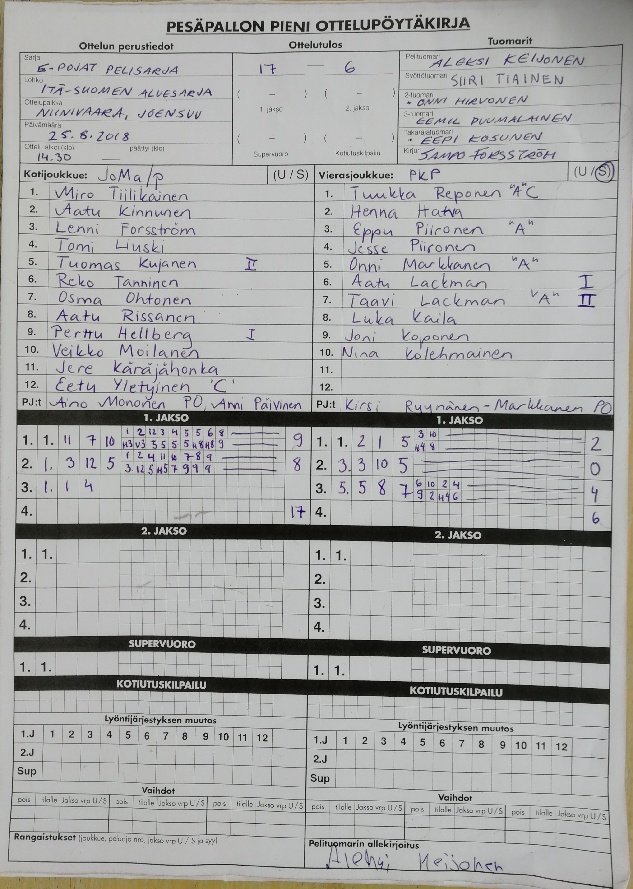 PESÄPALLON PIENI OTTELUPÖYTÄKIRJA
Ottelun perustiedot
Sarja
E-POJAT PELISARJA
Lohko
ITÄ-SUOMEN ALUESARJA
Ottelupaikka
NIINIVAARA, JOENSUU
Päivämäärä
25.6.2018
Ottelu alkoi (klo) päättyi (klo)
14.30
Ottelutulos
17 — 6
( – ) ( – )
1. jakso 2. jakso
( – ) ( – )
Supervuoro Kotiutuskilpailu
Tuomarit
Pelituomari
ALEKSI KEIJONEN
Syöttötuomari
SIIRI TIAINEN
2-tuomari
ONNI HIRVONEN
3-tuomari
EEMIL PUUMALAINEN
Takarajatuomari
EEPI KOSUNEN
Kirjuri
SAMPO FORSSTRÖM
Kotijoukkue: JoMa/p (U / S)
1. Miro Tiilikainen
2. Aatu Kinnunen
3. Lenni Forsström
4. Tomi Huski
5. Tuomas Kujanen II
6. Reko Tanninen
7. Osma Ohtonen
8. Aatu Rissanen
9. Perttu Hellberg I
10. Veikko Moilanen
11. Jere Käräjähonka
12. Eetu Yletyinen 'C'
PJ:t Aino Mononen PO, Anni Päivinen
Vierasjoukkue: PKP (U / S)
1. Tuukka Reponen "A" C
2. Henna Hatva
3. Eppu Piironen "A"
4. Jesse Piironen
5. Onni Markkanen "A"
6. Aatu Lackman I
7. Taavi Lackman "A" II
8. Luka Kaila
9. Joni Koponen
10. Nina Kolehmainen
11.
12.
PJ:t Kirsi Ryynänen-Markkanen PO
1. JAKSO
1. 1. 11 7 10 9
2. 1. 3 12 5 8
3. 1. 1 4
4. 17
1. JAKSO
1. 1. 2 1 5 2
2. 3. 3 10 5 0
3. 5. 5 8 7 4
4. 6
2. JAKSO
1. 1.
2.
3.
4.
2. JAKSO
1. 1.
2.
3.
4.
SUPERVUORO
1. 1.
SUPERVUORO
1. 1.
KOTIUTUSKILPAILU
KOTIUTUSKILPAILU
Lyöntijärjestyksen muutos
1.J 1 2 3 4 5 6 7 8 9 10 11 12
2.J
Sup
Lyöntijärjestyksen muutos
1.J 1 2 3 4 5 6 7 8 9 10 11 12
2.J
Sup
Vaihdot
pois tilalle Jakso vrp U / S pois tilalle Jakso vrp U / S pois tilalle Jakso vrp U / S
Vaihdot
pois tilalle Jakso vrp U / S pois tilalle Jakso vrp U / S pois tilalle Jakso vrp U / S
Rangaistukset (joukkue, pelaaja nro, jakso vrp U / S ja syy)
Pelituomarin allekirjoitus
Aleksi Keijonen